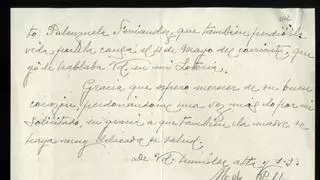 to Palenzuela Fernandez, que también perdió la
vida por la causa el 4 de Mayo del corriente, que
ya le hablaba Vd. en mi
Gracia que espero merecer de su buen
corazón, perdonándome una vez más lo por mi
solicitado, en gracia a que también la madre se
haya muy delicada de salud.
De Vd. humilde atta y s.s.